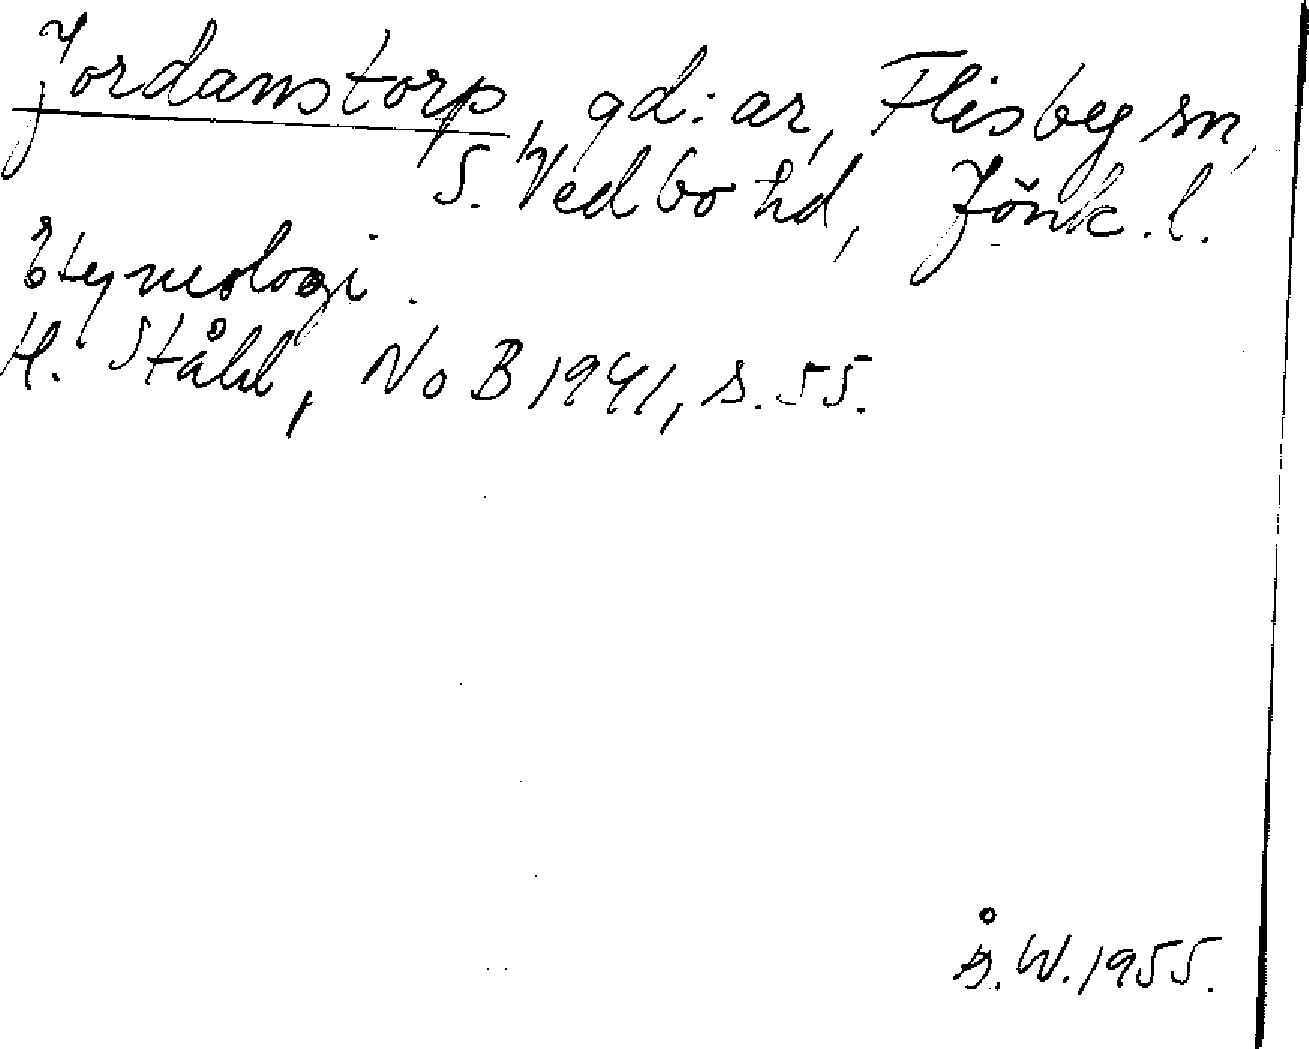 Jordanstorp, gd:ar, Flisby sn,
S. Vedbo hd, Jönk. l.
Etymologi.
H. Ståhl, NoB 1941, s. 55.
Å. W. 1955.